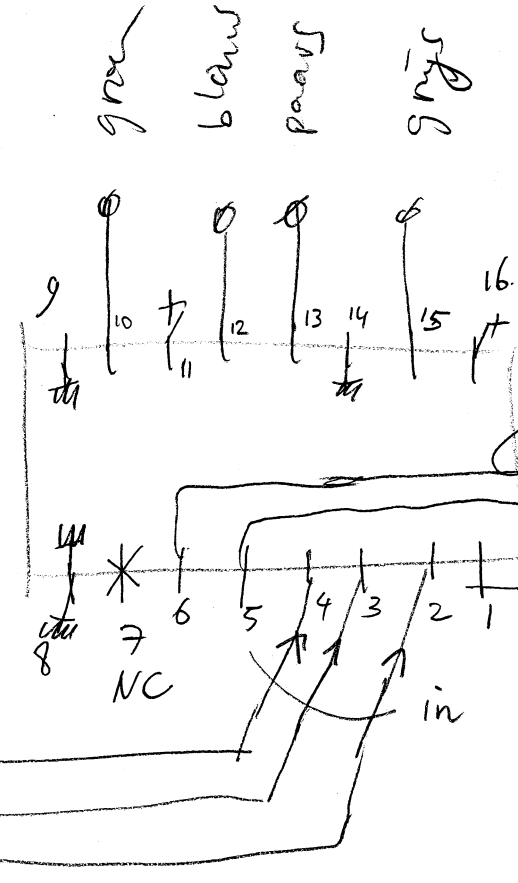 blauw
paars
grijs
9
10
+
11
12
13
14
15
16
+
8
7
6
5
4
3
2
1
NC
in